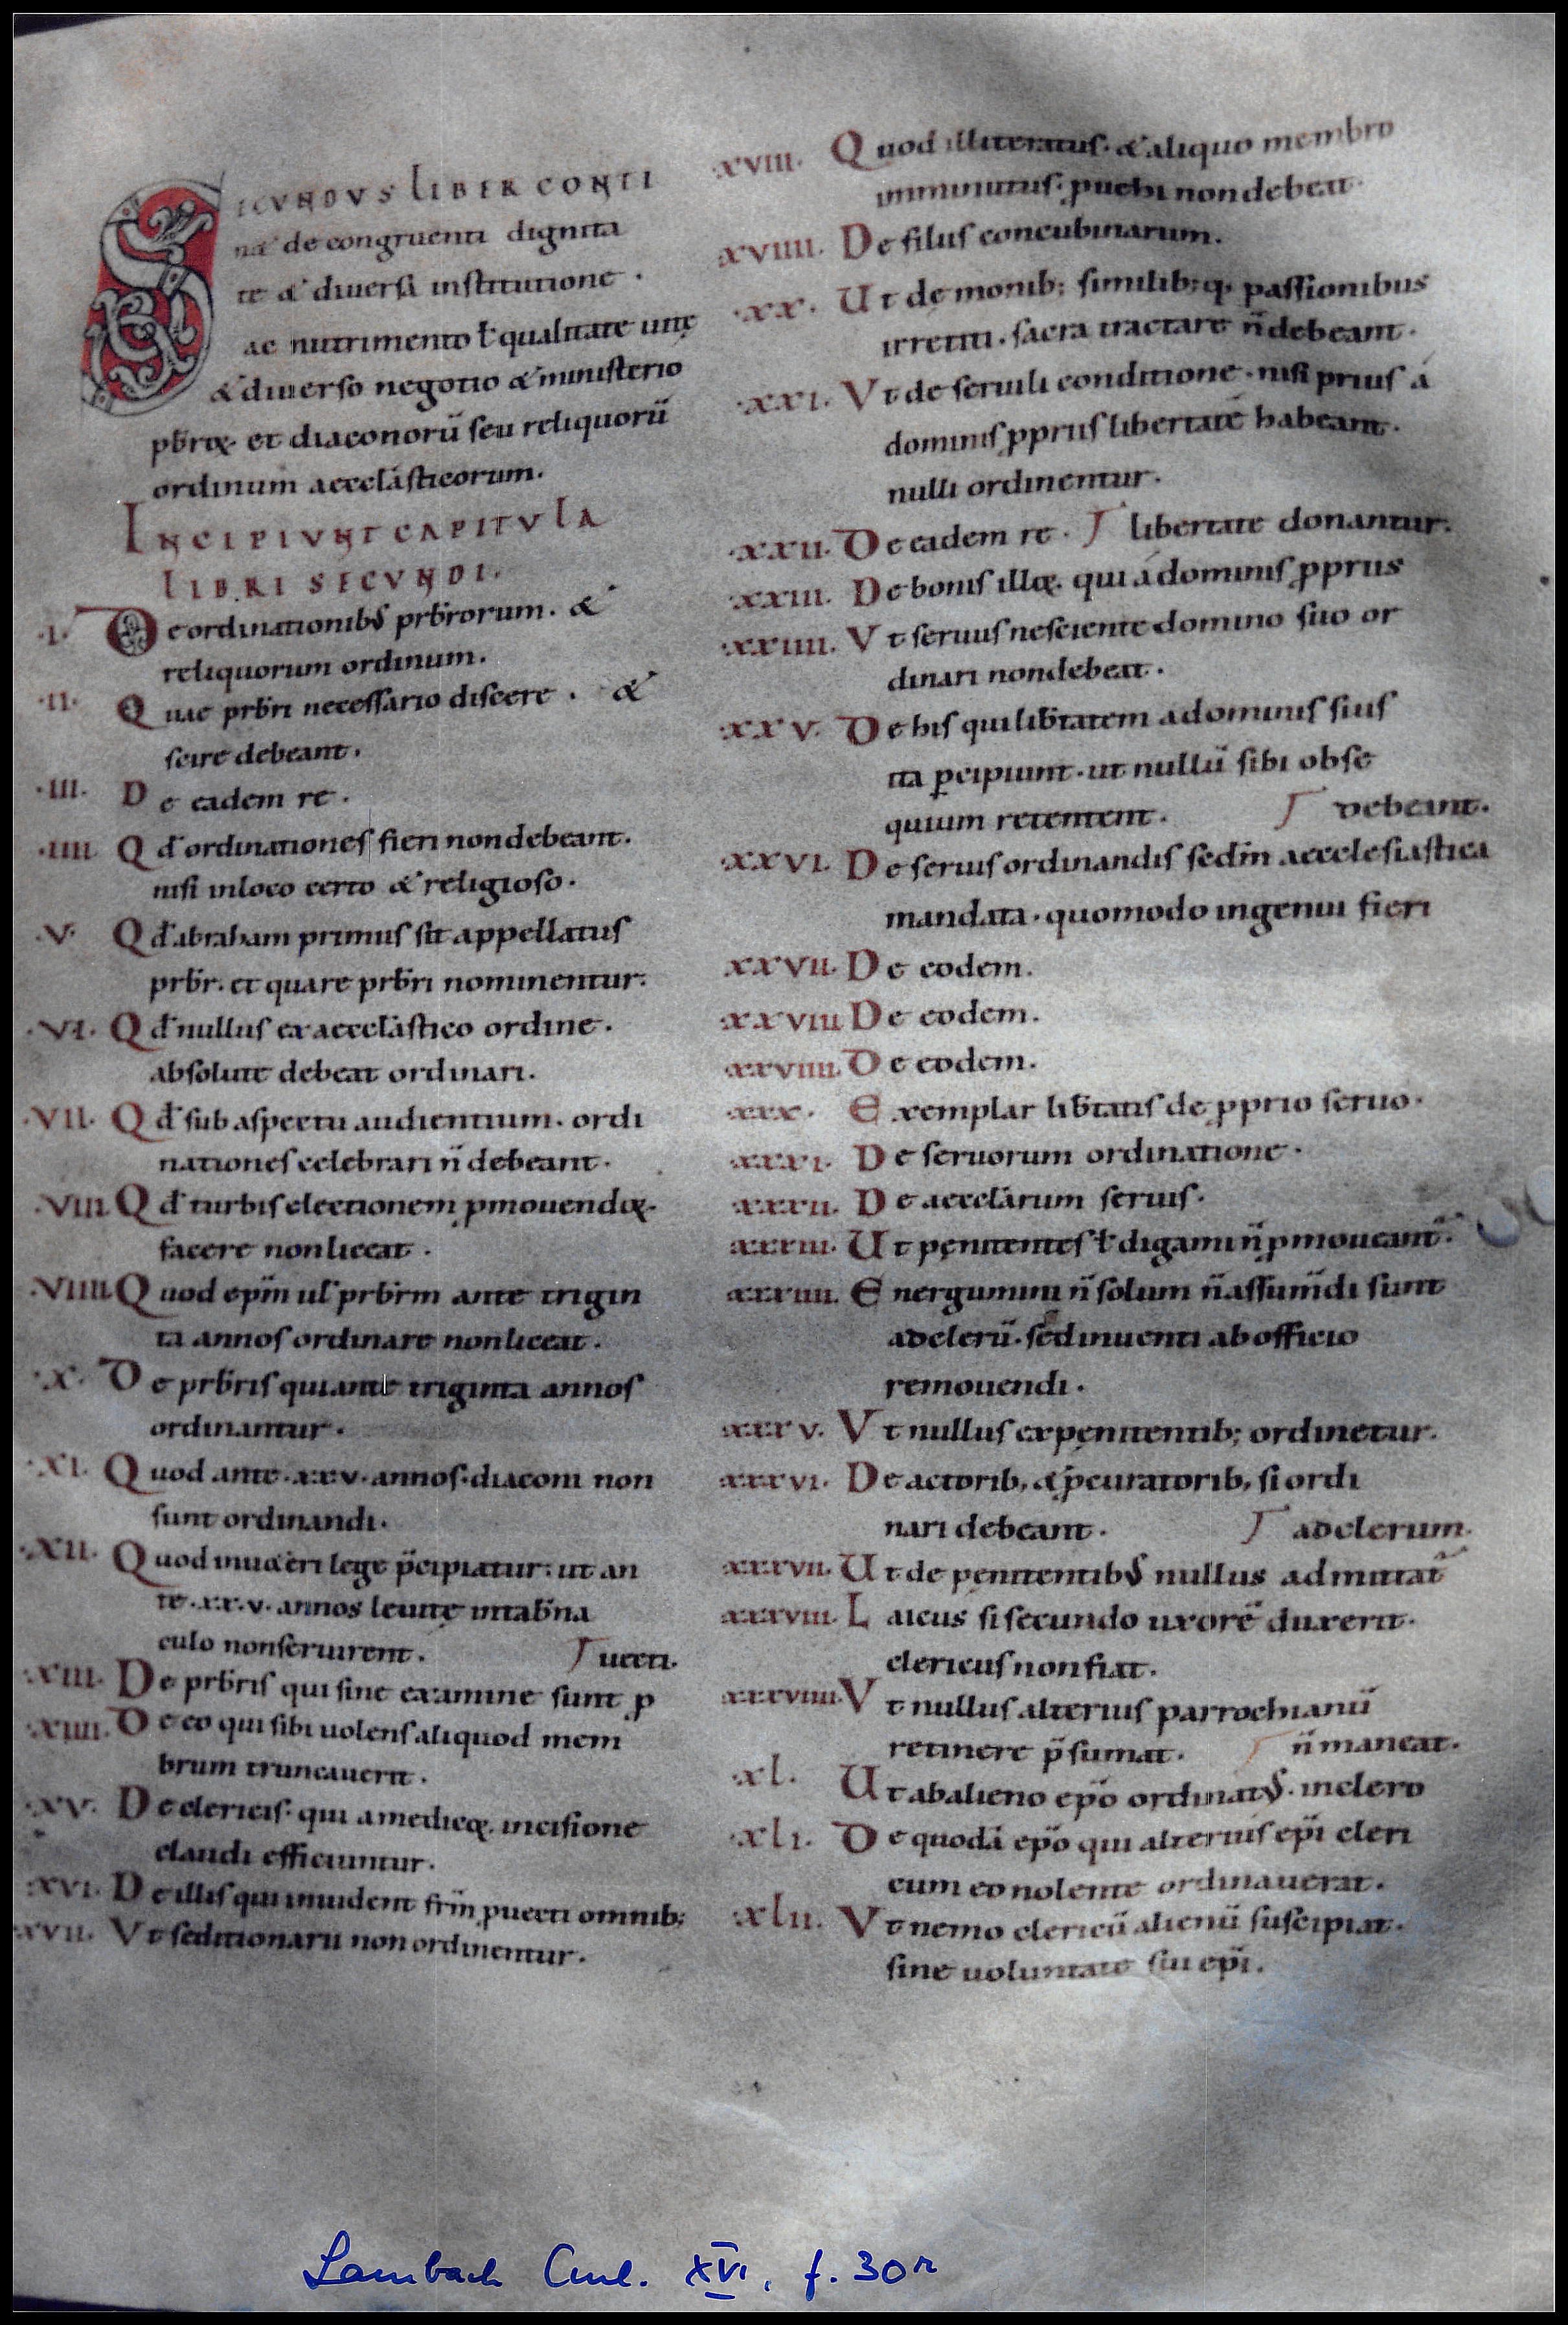 SECUNDUS LIBER CONTI
n& de congruenti dignita
te & diuersa institutione .
ac nutrimento ł qualitate uitę
& diuerso negotio & ministerio
pbroꝝ. et diaconorū seu reliquorū
ordinum aecclāsticorum.
INCIPIUNT CAPITULA
LIBRI SECUNDI.
.I. De ordinationibus prbrorum. &
reliquorum ordinum.
.II. Quae prbri necessario discere . &
scire debeant.
.III. De eadem re .
.IIII. Qđ ordinationes fieri non debeant.
nisi in loco certo & religioso.
.V. Qđ abraham primus sit appellatus
prbr. et quare prbri nominentur.
.VI. Qđ nullus ex aecclastico ordine.
absolute debeat ordinari.
.VII. Qđ sub aspectu audientium. ordi
nationes celebrari n̄ debeant.
.VIII. Qđ turbis electionem ꝓmouendoꝝ.
facere non liceat .
.VIIII. Quod epm̄ ul prbrm ante trigin
ta annos ordinare non liceat .
.X. De prbris qui ante triginta annos
ordinantur .
.XI. Quod ante .xxv. annos. diaconi non
sunt ordinandi.
.XII. Quod in ueteri lege p̄cipiatur: ut an
te .xx.v. annos leuitę in tabna
culo non seruirent. ┌ uecti.
.XIII. De prbris qui sine examine sunt ꝓ
.XIIII. De eo qui sibi uolens aliquod mem
brum truncauerit .
.XV. De clericis. qui a medicoꝝ. incisione
claudi efficiuntur.
.XVI. De illis qui inuident frm̄ ꝓuecti omnib;
.XVII. Ut seditionarii non ordinentur.
.XVIII. Quod illiteratus. & aliquo membro
imminutus. ꝓuehi non debeat.
.XVIIII. De filiis concubinarum.
.XX. Ut demonib; similib;q, passionibus
irretiti. sacra tractare n̄ debeant.
.XXI. Ut de seruili conditione. nisi prius á
dominis ꝓpriis libertatē habeant.
nulli ordinentur.
.XXII. De eadem re . ┌ libertate donantur.
.XXIII. De bonis illoꝝ. qui á dominis ꝓpriis
.XXIIII. Ut seruus nesciente domino suo or
dinari non debeat .
.XXV. De his qui libtatem a dominis suis
ita ꝑcipiunt. ut nullū sibi obse
quium retentent . ┌ debeant.
.XXVI. De seruis ordinandis sedm̄ aecclesiastica
mandata. quomodo ingenui fieri
.XXVII. De eodem.
.XXVIII De eodem.
.XXVIIII. De eodem.
.XXX. Exemplar libtatis de ꝓprio seruo.
.XXXI. De seruorum ordinatione.
.XXXII. De aecclārum seruis.
.XXXIII. Ut pęnitentes ł digami n̄ ꝓmoueant̄.
.XXXIIII. Energumini n̄ solum n̄ assum̄di sunt
ad clerū. sed inuenti ab officio
remouendi .
.XXXV. Ut nullus ex pęnitentib; ordinetur.
.XXXVI. De actorib, & ꝓcuratorib, si ordi
nari debeant . ┌ ad clerum.
.XXXVII. Ut de penitentibus nullus admittat̄
.XXXVIII. Laicus si secundo uxorē duxerit.
clericus non fiat.
.XXXVIIII. Ut nullus alterius parrochianū
retinere p̄sumat. ┌ n̄ maneat.
.XL. Ut ab alieno epō ordinatus. in clero
.XLI. De quodā epō qui alterius epi cleri
cum eo nolente ordinauerat.
.XLII. Ut nemo clericū alienū suscipiat.
sine uoluntate sui epi.
Lambach Cml. XVI, f. 30r